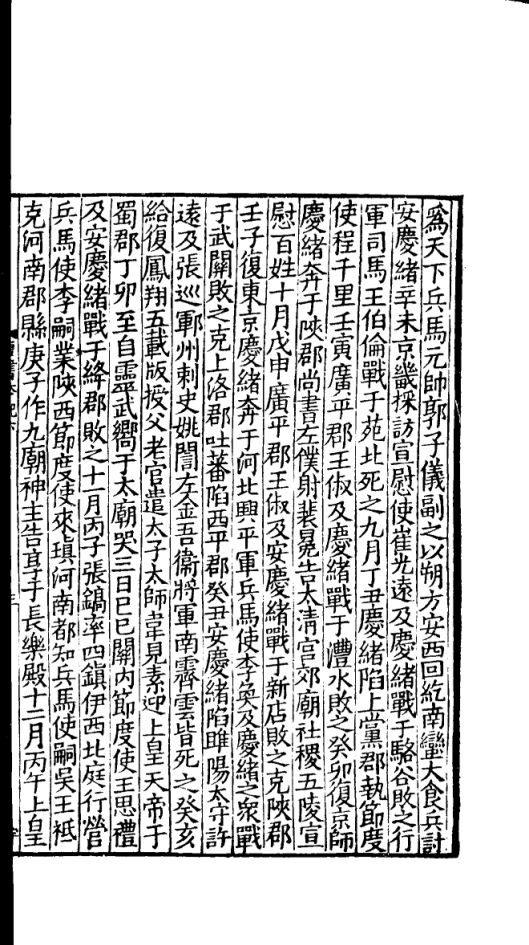 爲天下兵馬元帥郭子儀副之以朔方安西回紇南蠻大食兵討
安慶緒辛未京畿採訪宣慰使崔光遠及慶緒戰于駱谷敗之行
軍司馬王伯倫戰于苑北死之九月丁丑慶緒陷上黨郡執節度
使程千里壬寅廣平郡王俶及慶緒戰于灃水敗之癸卯復京師
慶緒奔于陝郡尚書左僕射裴冕告太清宮郊廟社稷五陵宣
慰百姓十月戊申廣平郡王俶及安慶緒戰于新店敗之克陝郡
壬子復東京慶緒奔于河北興平軍兵馬使李奐及慶緒之衆戰
于武關敗之克上洛郡吐蕃陷西平郡癸丑安慶緒陷睢陽太守許
遠及張巡鄆州刺史姚誾左金吾衞將軍南霽雲皆死之癸亥
給復鳳翔五載版授父老官遣太子太師韋見素迎上皇天帝于
蜀郡丁卯至自靈武嚮于太廟哭三日己巳關內節度使王思禮
及安慶緒戰于絳郡敗之十一月丙子張鎬率四鎮伊西北庭行營
兵馬使李嗣業陝西節度使來瑱河南都知兵馬使嗣吳王祗
克河南郡縣庚子作九廟神主告享于長樂殿十二月丙午上皇